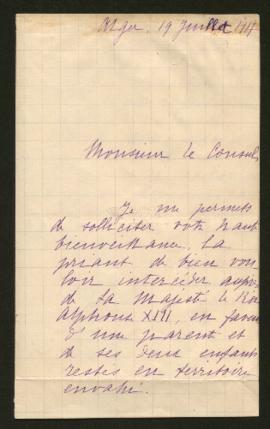 Alger, 19 Juillet 1917
Monsieur le Consul,
Je me permets
de solliciter votre haute
bienveillance, la
priant de bien vou-
loir intercéder auprès
de Sa Majesté le Roi
Alphonse XIII, en faveur
d'une parent et
de ses deux enfants
restés en territoire
envahi.